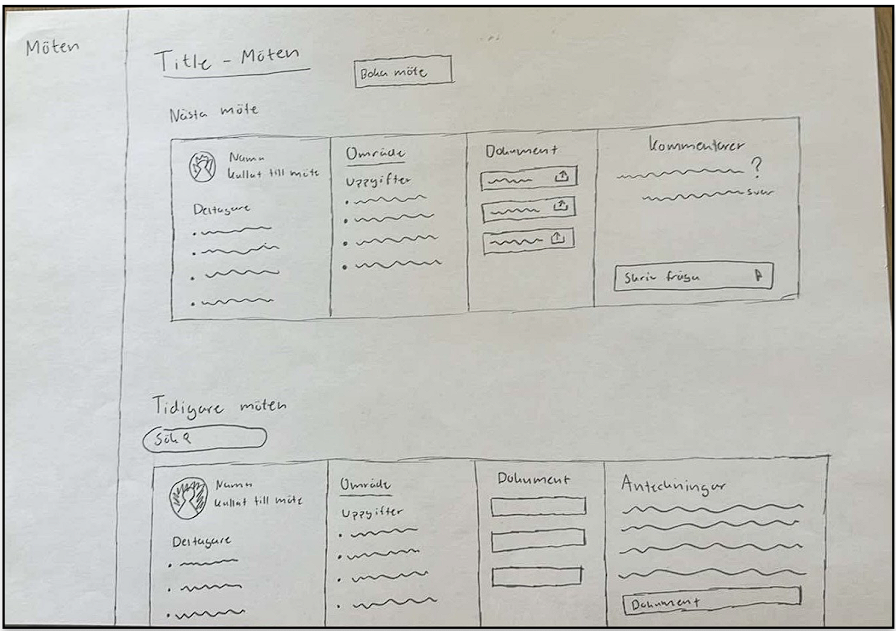 Möten
Title - Möten
Boka möte
Nästa möte
Namn
kallat till möte
Deltagare
Område
Uppgifter
Dokument
Kommentarer
?
svar
Skriv fråga
Tidigare möten
Sök
Namn
kallat till möte
Deltagare
Område
Uppgifter
Dokument
Anteckningar
Dokument